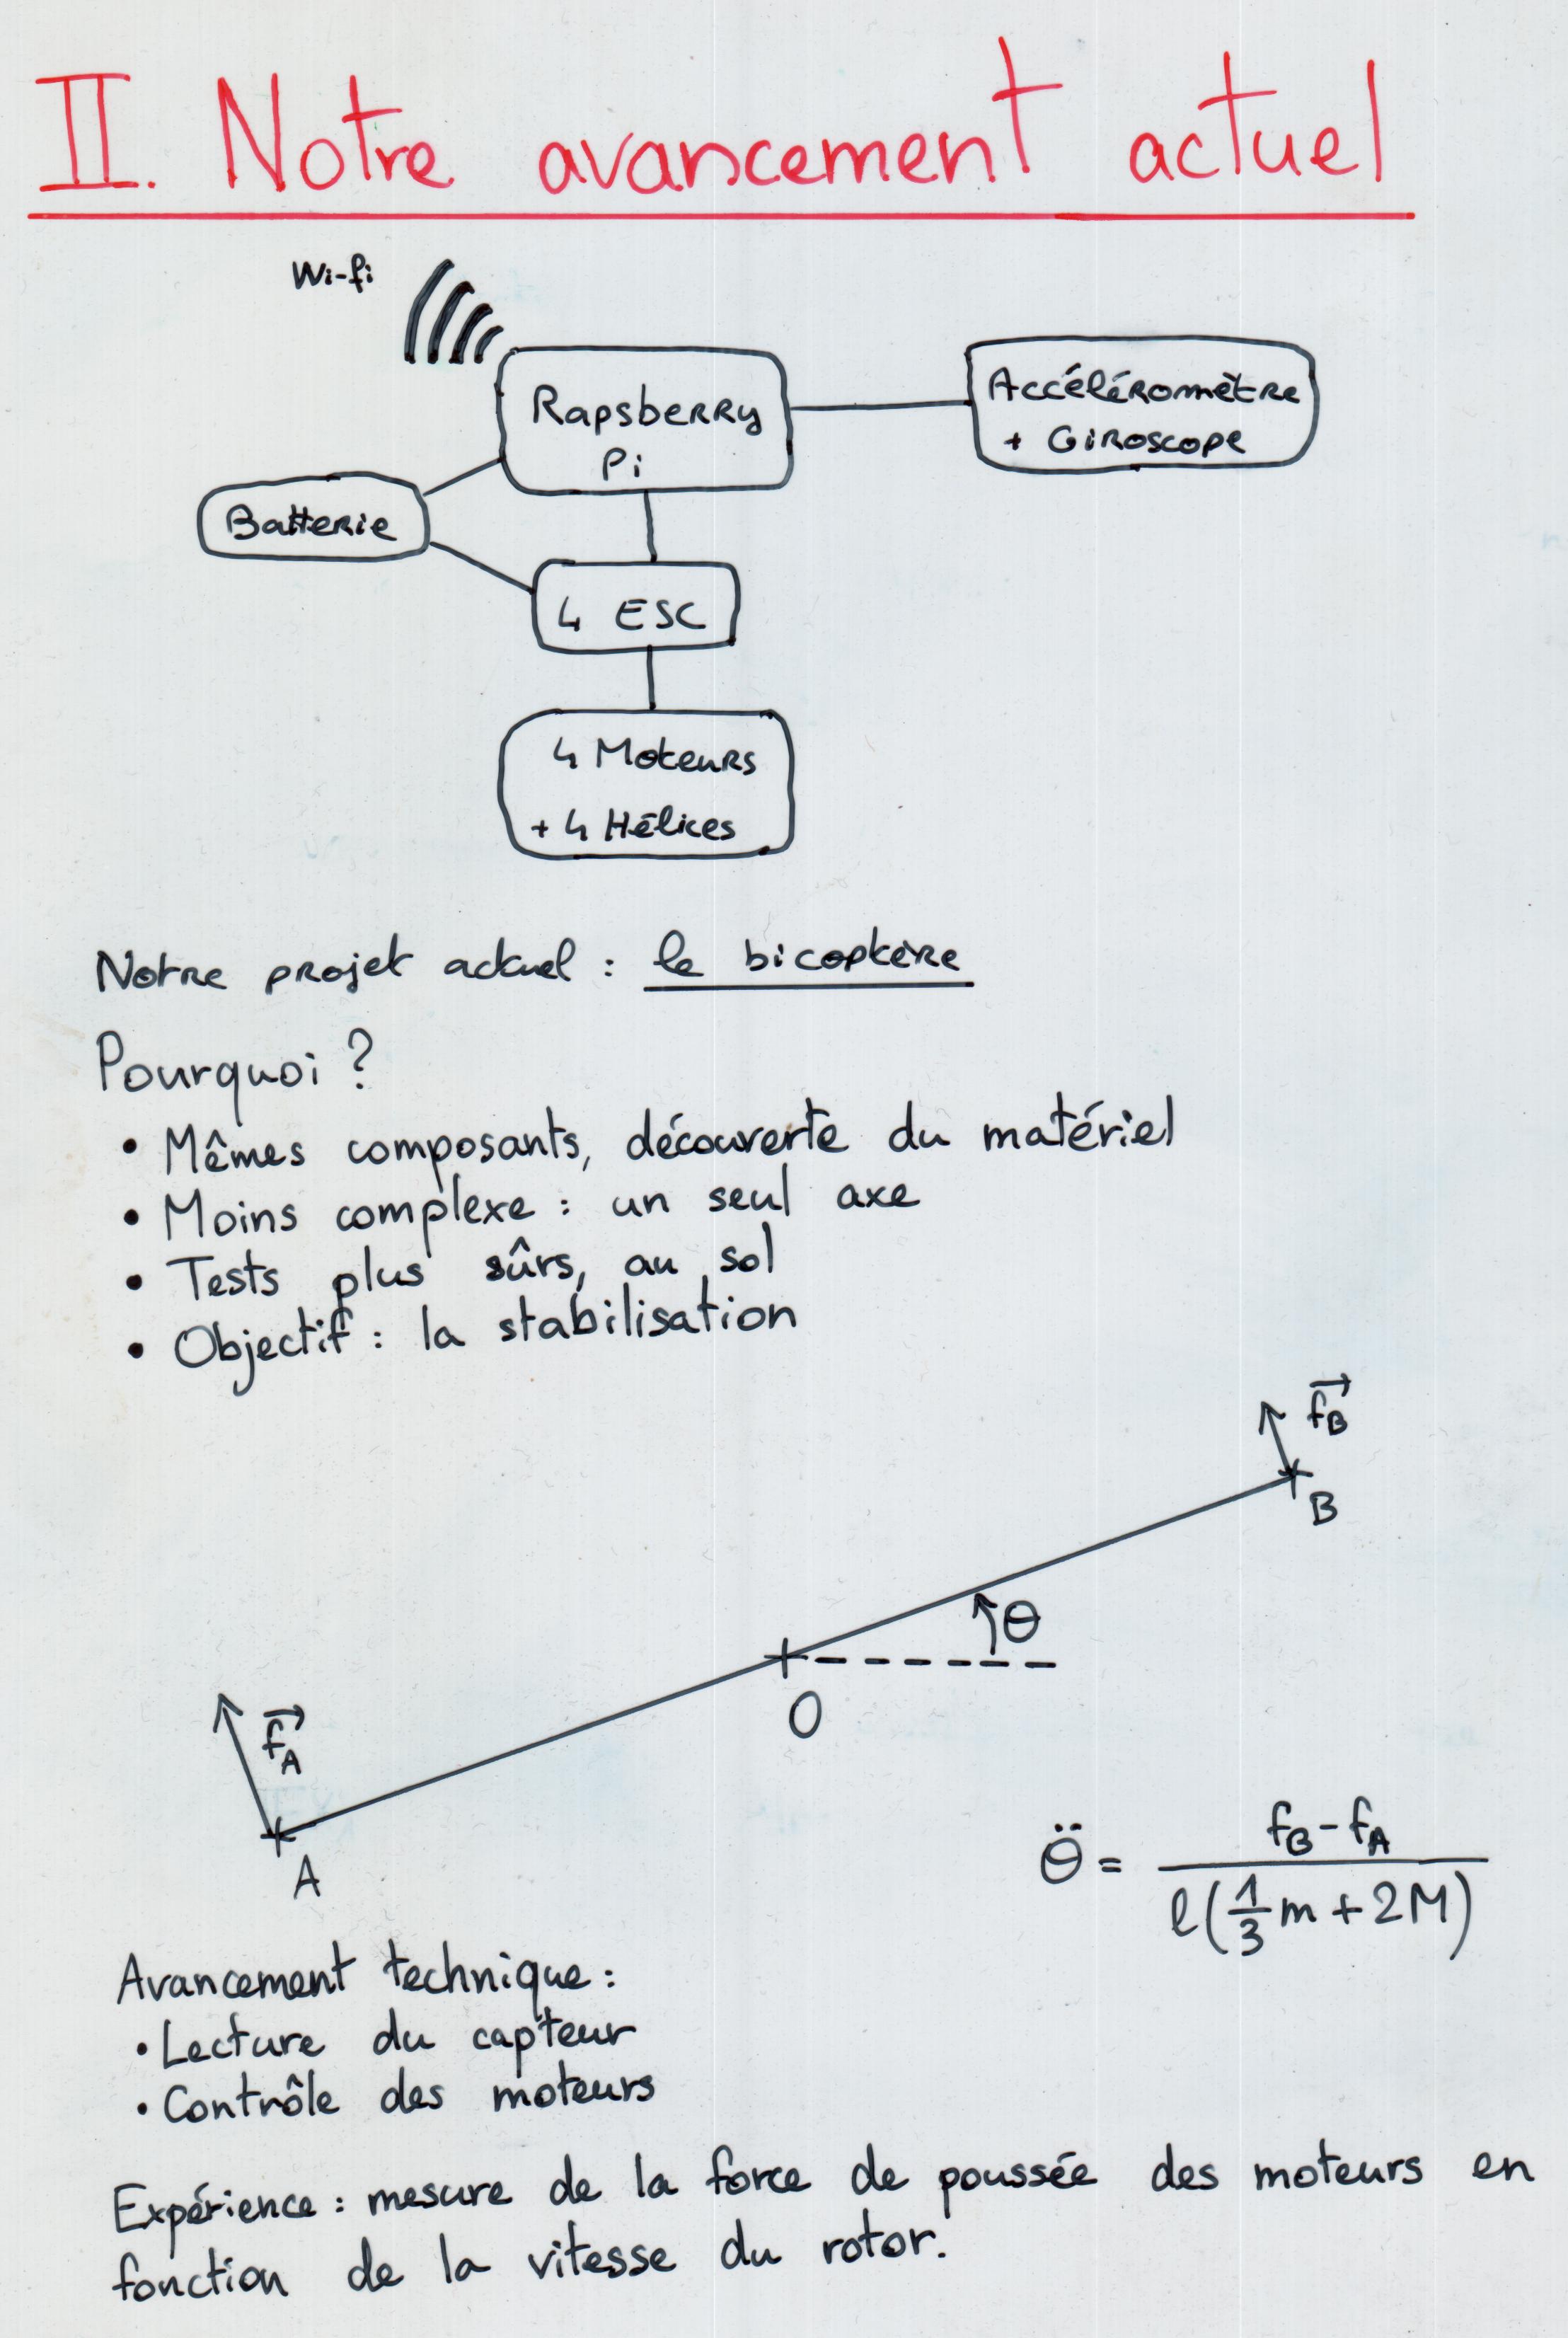 II. Notre avancement actuel
Wi-fi
Rapsberry
Pi
Accéléromètre
+ Giroscope
Batterie
4 ESC
4 Moteurs
+ 4 Hélices
Notre projet actuel : le bicoptère
Pourquoi ?
• Mêmes composants, découverte du matériel
• Moins complexe : un seul axe
• Tests plus sûrs, au sol
• Objectif : la stabilisation
f_B
B
θ
O
f_A
A
θ̈ = (f_B - f_A) / (l(1/3 m + 2M))
Avancement technique :
• Lecture du capteur
• Contrôle des moteurs
Expérience : mesure de la force de poussée des moteurs en
fonction de la vitesse du rotor.